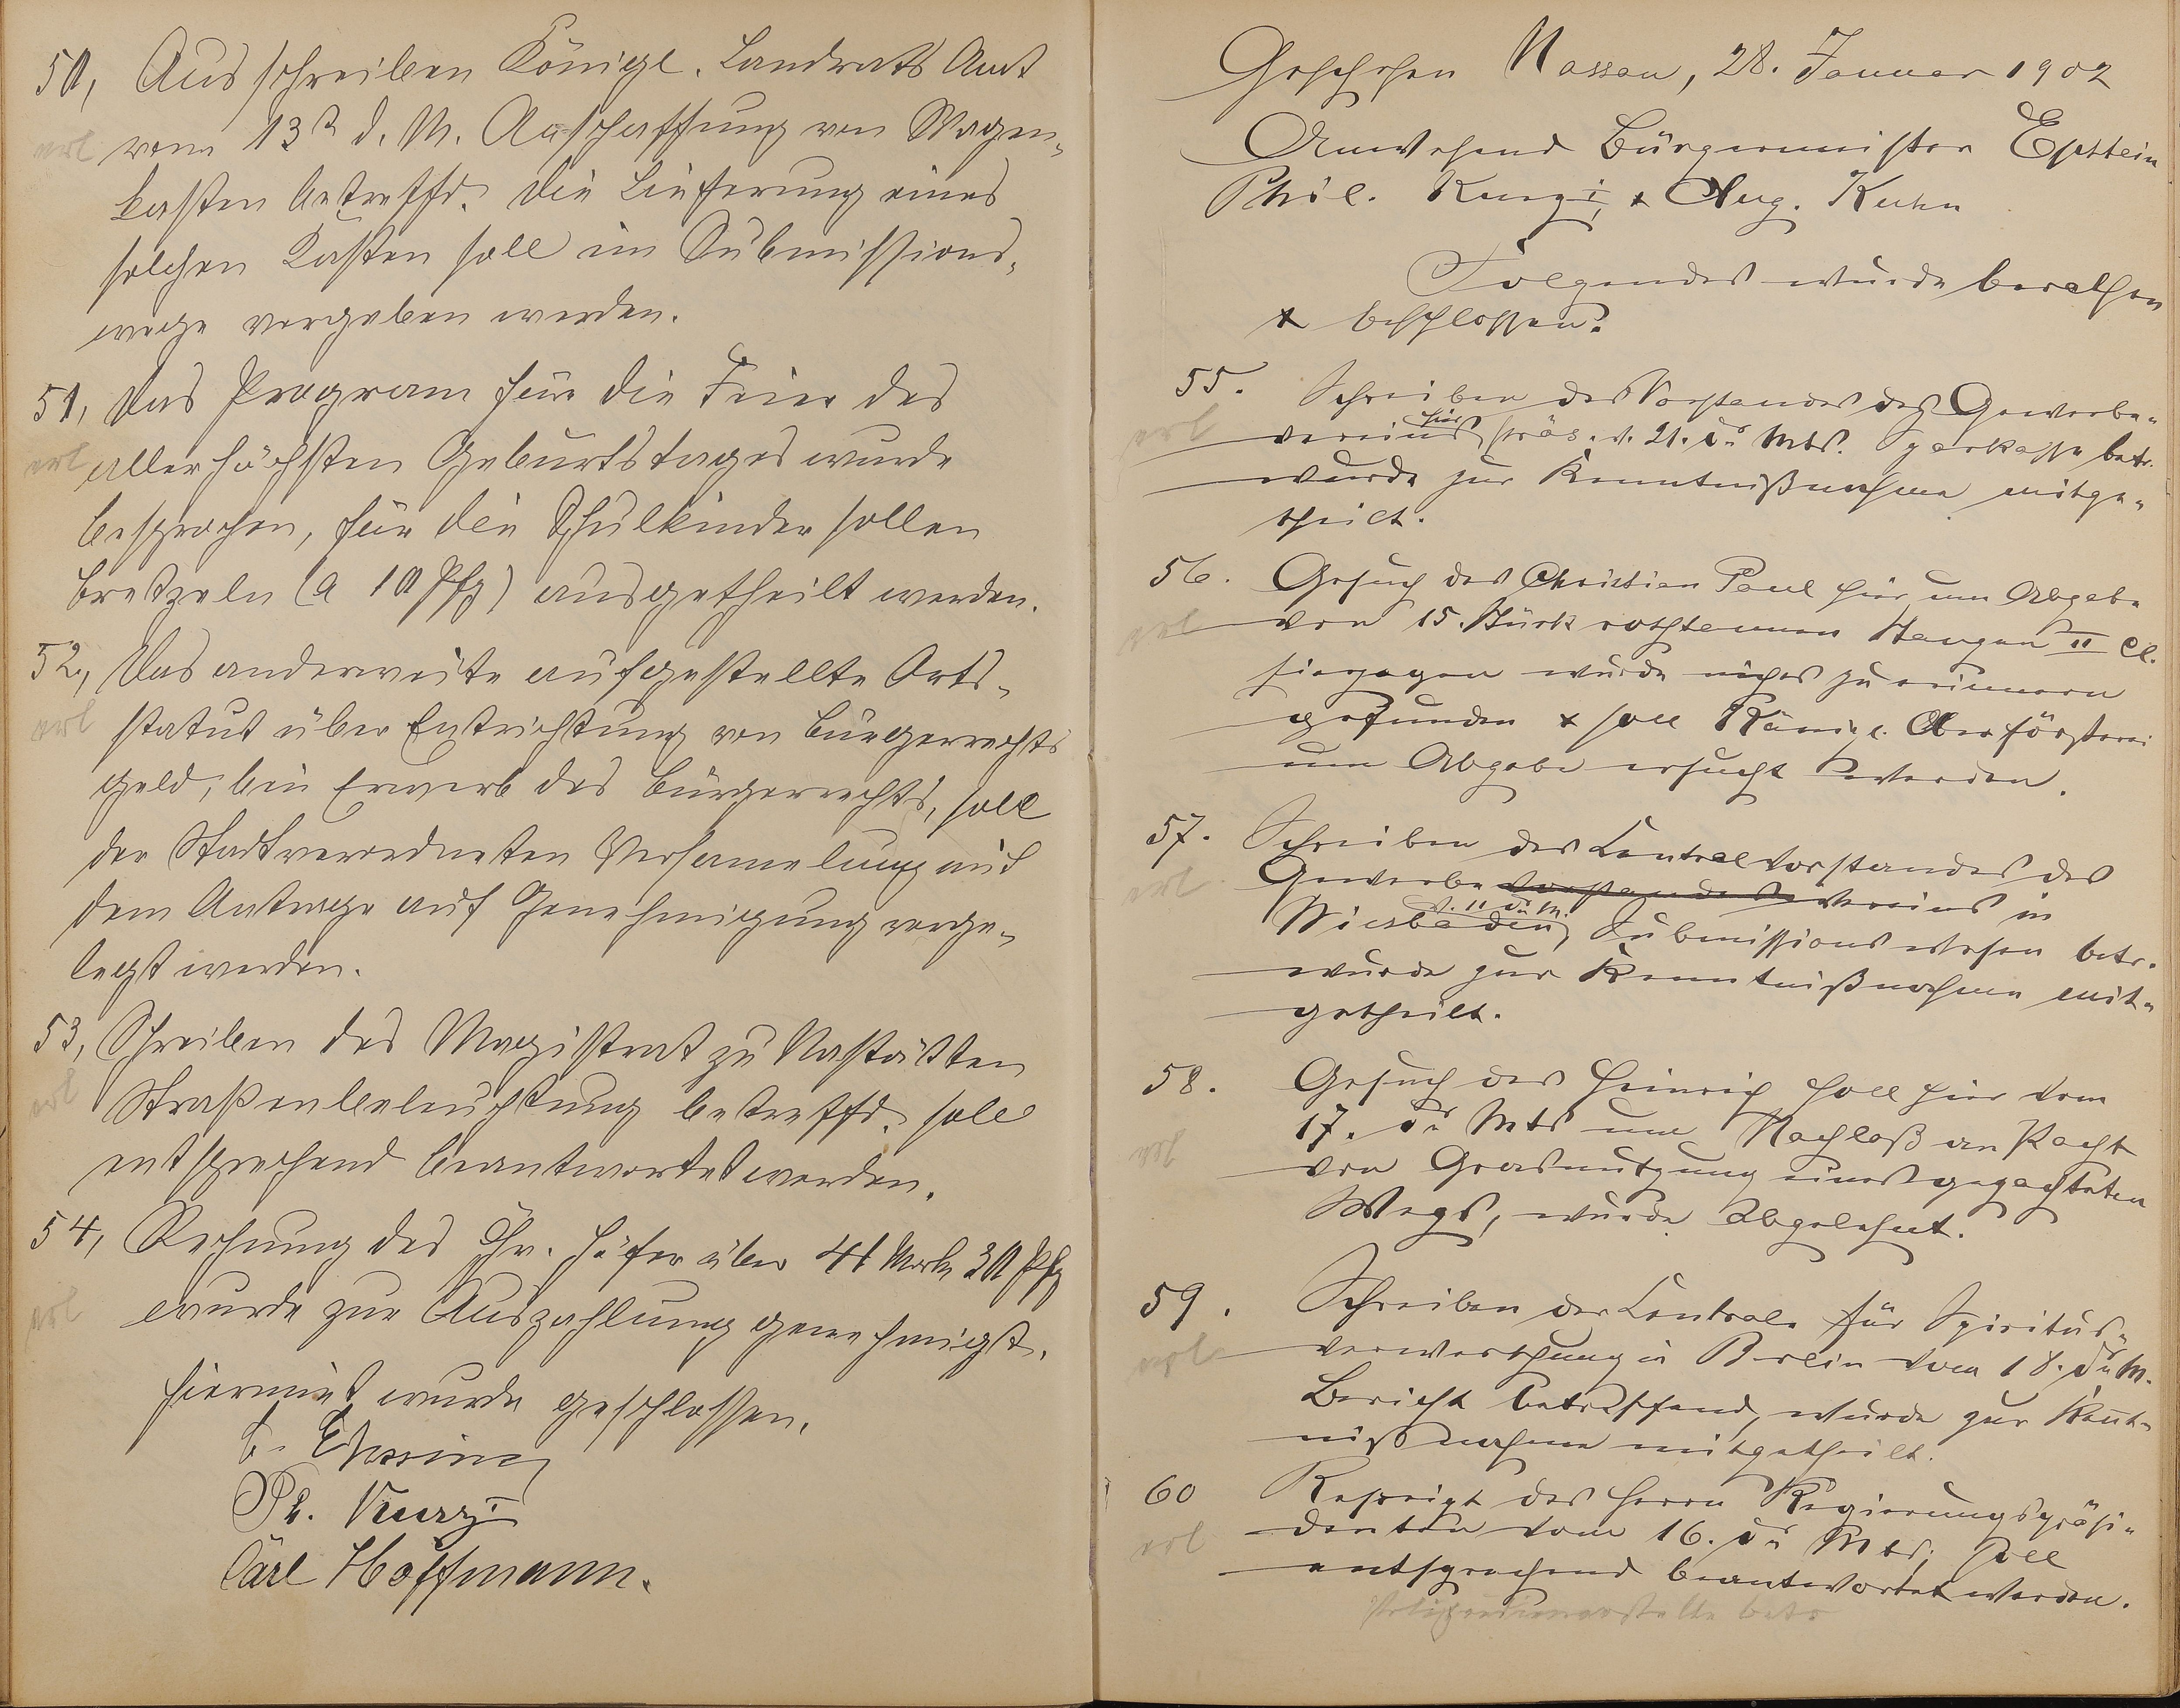 50, Ausschreiben Königl. Landrats Amt
erl vom 13ten d. M. Anschaffung von Wagen-
kasten betreffd. Die Lieferung eines
solchen Kasten soll im Submissions-
wege vergeben werden.
51, Das Program für die Feier des
erl allerhöchsten Geburtstages wurde
besprochen, für die Schulkinder sollen
Bretzeln (a 10 Pfg) ausgetheilt werden.
52, Das anderweite aufgestellte Orts-
erl statut über Entrichtung von Bürgerrechts
geld, bei Erwerb des Bürgerrechts, soll
der Stadtverordneten Versamelung mit
dem Antrage auf Genehmigung vorge-
legt werden.
53, Schreiben des Magistrat zu Nastätten
erl Straßenbeleuchtung betreffd. soll
entsprechend beantwortet werden.
54, Rechnung des Chr. Höfer über 41 Mark 30 Pfg
erl wurde zur Auszahlung genehmigt.
Hiermit wurde geschlossen.
Ph. Kurz I
Carl Hoffmann.
Geschehen Nassau, 28. Januar 1902
Anwesend Bürgermeister Epstein
Phil. Kurz I, & Aug. Kuhn
Folgendes wurde berathen
& beschlossen:
55. Schreiben des Vorstandes des Gewerbe-
erl vereins hier, präs. v. 21. ds Mts. Sparkasse betr.
wurde zur Kenntnißnahme mitge-
theilt.
56. Gesuch des Christian Paul hier um Abgabe
erl von 15. Stück rothtannen Stangen II Cl.
hiergegen wurde nichts zu erinnern
gefunden & soll Königl. Oberförsterei
um Abgabe ersucht werden.
57. Schreiben des Centralvorstandes des
erl Gewerbe vorstandes Vereins in
Wiesbaden v. 11 ds M., Submissionswesen betr.
wurde zur Kenntnißnahme mit-
getheilt.
58. Gesuch des Heinrich Holl hier vom
erl 17. ds Mts um Nachlaß an Pacht
von Grasnutzung eines gepachteten
Wegs, wurde abgelehnt.
59. Schreiben der Centrale für Spiritus-
erl verwerthung in Berlin vom 18. ds M.
Bericht betreffend, wurde zur Kent-
nißnahme mitgetheilt.
60 Rescript des Herrn Regierungspräsi-
erl denten vom 16. ds Mts, soll
entsprechend beantwortet werden.